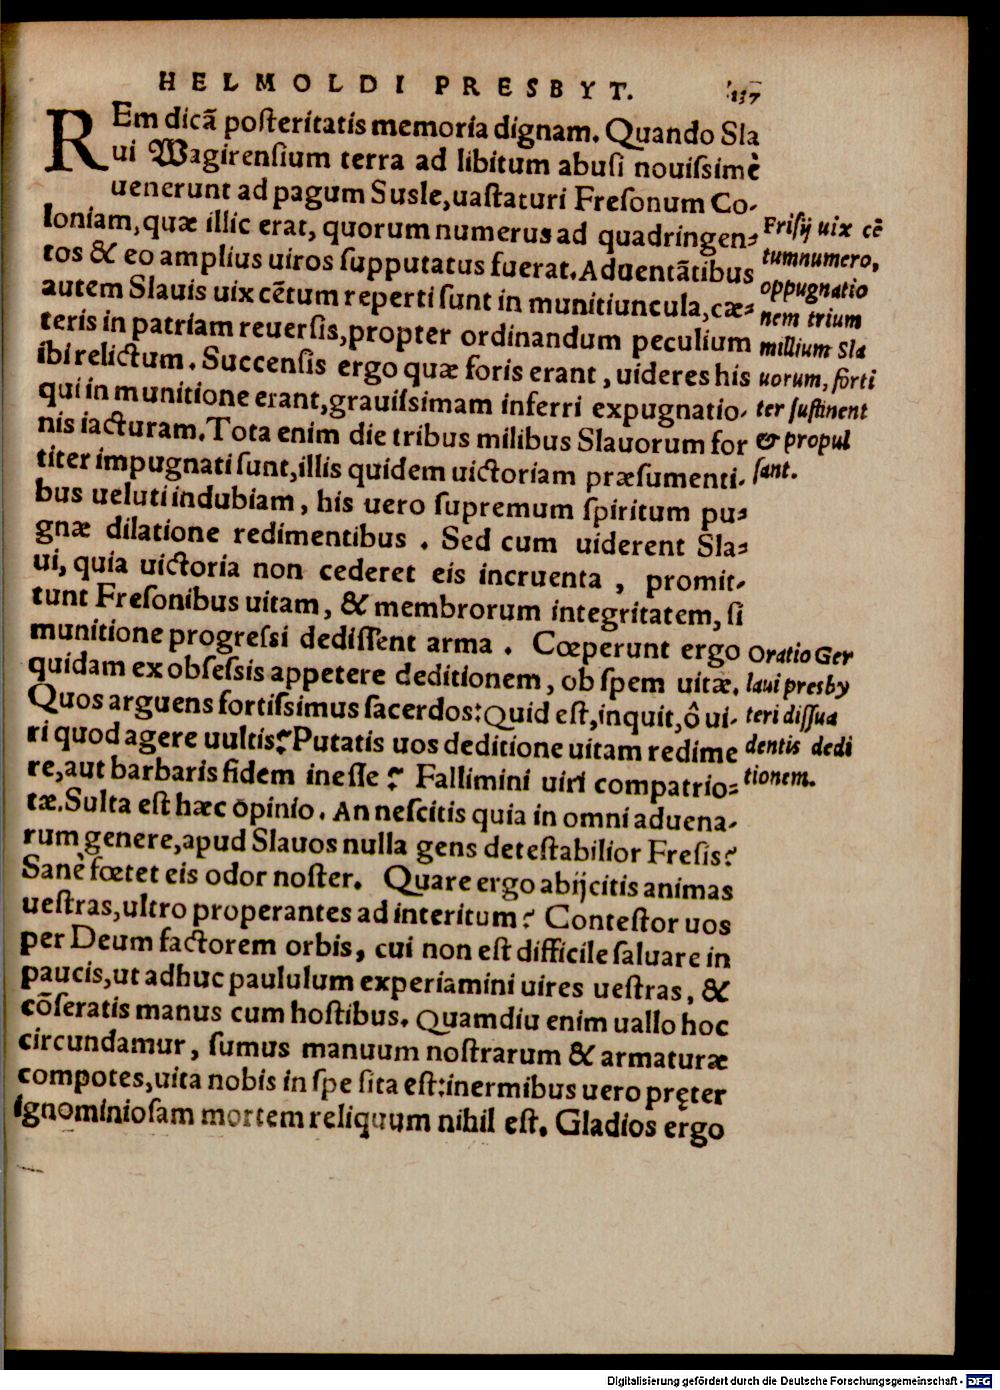 HELMOLDI PRESBYT. 137
REm dicã poſteritatis memoria dignam. Quando Sla
ui Wagirenſium terra ad libitum abuſi nouiſsimè
uenerunt ad pagum Susle, uaſtaturi Freſonum Co-
loniam, quæ illic erat, quorum numerus ad quadringen=
tos & eo amplius uiros ſupputatus fuerat. Aduentãtibus
autem Slauis uix cẽtum reperti ſunt in munitiuncula, cæ=
teris in patriam reuerſis, propter ordinandum peculium
ibi relictum. Succenſis ergo quæ foris erant, uideres his
qui in munitione erant, grauiſsimam inferri expugnatio-
nis iacturam. Tota enim die tribus milibus Slauorum for
titer impugnati ſunt, illis quidem uictoriam præſumenti-
bus ueluti indubiam, his uero ſupremum ſpiritum pu=
gnæ dilatione redimentibus. Sed cum uiderent Sla=
ui, quia uictoria non cederet eis incruenta, promit-
tunt Freſonibus uitam, & membrorum integritatem, ſi
munitione progreſsi dediſſent arma. Cœperunt ergo
quidam ex obſeſsis appetere deditionem, ob ſpem uitæ.
Quos arguens fortiſsimus ſacerdos: Quid eſt, inquit, ô ui-
ri quod agere uultis? Putatis uos deditione uitam redime
re, aut barbaris fidem ineſſe? Fallimini uiri compatrio=
tæ. Sulta eſt hæc opinio. An neſcitis quia in omni aduena-
rum genere, apud Slauos nulla gens deteſtabilior Freſis?
Sanè fœtet eis odor noſter. Quare ergo abijcitis animas
ueſtras, ultro properantes ad interitum? Conteſtor uos
per Deum factorem orbis, cui non eſt difficile ſaluare in
paucis, ut adhuc paululum experiamini uires ueſtras, &
cõſeratis manus cum hoſtibus. Quamdiu enim uallo hoc
circundamur, ſumus manuum noſtrarum & armaturæ
compotes, uita nobis in ſpe ſita eſt: inermibus uero pręter
ignominioſam mortem reliquum nihil eſt. Gladios ergo
Friſij uix cẽ
tum numero,
oppugnatio
nem trium
millium Sla
uorum, forti
ter ſuſtinent
& propul
ſant.
Oratio Ger
laui presby
teri diſſua
dentis dedi
tionem.
Digitalisierung gefördert durch die Deutsche Forschungsgemeinschaft - DFG